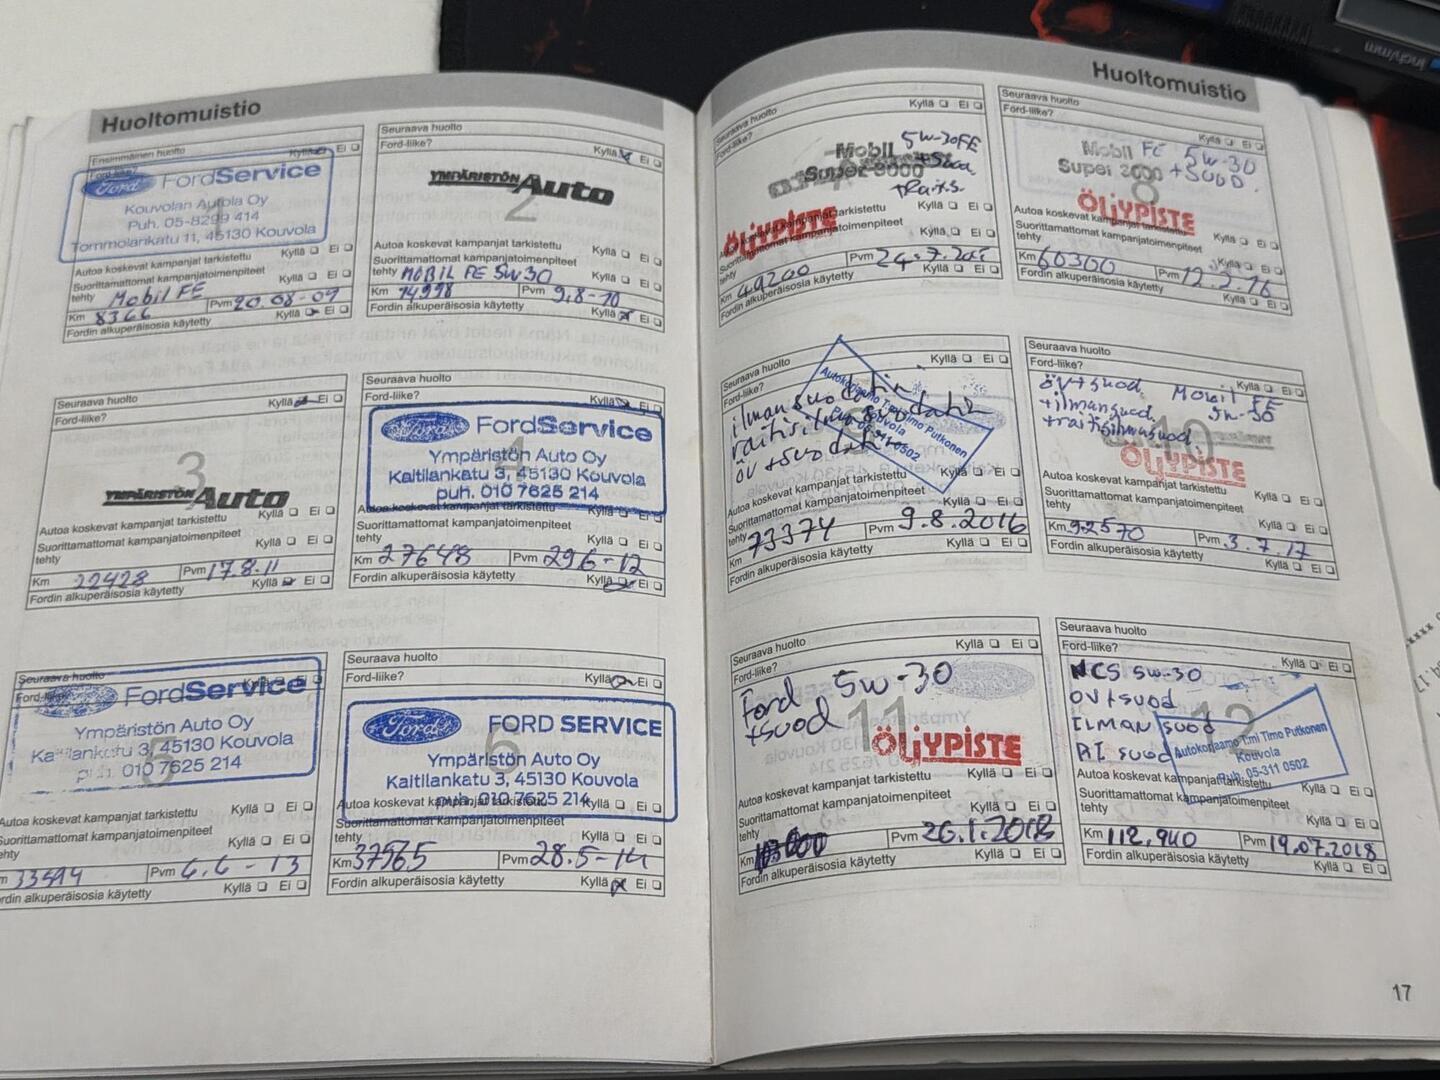 Huoltomuistio
Ensimmäinen huolto
Ford-liike?
Kyllä Ei
Ford FordService
Kouvolan Autola Oy
Puh. 05-8299 414
Tommolankatu 11, 45130 Kouvola
Autoa koskevat kampanjat tarkistettu Kyllä Ei
Suorittamattomat kampanjatoimenpiteet
tehty Mobil FE Kyllä Ei
Km 8366 Pvm 20.08-09
Fordin alkuperäisosia käytetty Kyllä Ei
Seuraava huolto
Ford-liike? Kyllä Ei
YMPÄRISTÖN Auto
2
Autoa koskevat kampanjat tarkistettu Kyllä Ei
Suorittamattomat kampanjatoimenpiteet
tehty MOBIL FE 5W30 Kyllä Ei
Km 14998 Pvm 9.8-10
Fordin alkuperäisosia käytetty Kyllä Ei
Seuraava huolto
Ford-liike? Kyllä Ei
3
YMPÄRISTÖN Auto
Autoa koskevat kampanjat tarkistettu Kyllä Ei
Suorittamattomat kampanjatoimenpiteet
tehty Kyllä Ei
Km 22428 Pvm 17.8.11
Fordin alkuperäisosia käytetty Kyllä Ei
Seuraava huolto
Ford-liike? Kyllä Ei
Ford FordService
4
Ympäristön Auto Oy
Kaitilankatu 3, 45130 Kouvola
puh. 010 7625 214
Autoa koskevat kampanjat tarkistettu Kyllä Ei
Suorittamattomat kampanjatoimenpiteet
tehty Kyllä Ei
Km 27648 Pvm 29.6-12
Fordin alkuperäisosia käytetty Kyllä Ei
Seuraava huolto
Ford-liike? Kyllä Ei
FordService
Ympäristön Auto Oy
Kaitilankatu 3, 45130 Kouvola
5
puh. 010 7625 214
Autoa koskevat kampanjat tarkistettu Kyllä Ei
Suorittamattomat kampanjatoimenpiteet
tehty Kyllä Ei
Km 33594 Pvm 6.6-13
Fordin alkuperäisosia käytetty Kyllä Ei
Seuraava huolto
Ford-liike? Kyllä Ei
Ford FORD SERVICE
6
Ympäristön Auto Oy
Kaitilankatu 3, 45130 Kouvola
puh. 010 7625 214
Autoa koskevat kampanjat tarkistettu Kyllä Ei
Suorittamattomat kampanjatoimenpiteet
tehty Kyllä Ei
Km 37565 Pvm 28.5-14
Fordin alkuperäisosia käytetty Kyllä Ei
Huoltomuistio
Seuraava huolto
Ford-liike? Kyllä Ei
Mobil 5W-30FE
Super 3000 +Suod.
+Raitis.
ÖLJYPISTE
Autoa koskevat kampanjat tarkistettu Kyllä Ei
Suorittamattomat kampanjatoimenpiteet
tehty Kyllä Ei
Km 49200 Pvm
Fordin alkuperäisosia käytetty Kyllä Ei
Seuraava huolto
Ford-liike? Kyllä Ei
Mobil FE 5W-30
Super 2000 +Suod.
8
ÖLJYPISTE
Autoa koskevat kampanjat tarkistettu Kyllä Ei
Suorittamattomat kampanjatoimenpiteet
tehty Kyllä Ei
Km 60300 Pvm 12.2.16
Fordin alkuperäisosia käytetty Kyllä Ei
Seuraava huolto
Ford-liike? Kyllä Ei
ilmansuodatin
raitis.ilmasuodatin
öv+suodatin
Autokorjaamo Tmi Timo Putkonen
Kouvola
Puh. 05-311 0502
Autoa koskevat kampanjat tarkistettu Kyllä Ei
Suorittamattomat kampanjatoimenpiteet
tehty Kyllä Ei
Km 73374 Pvm 9.8.2016
Fordin alkuperäisosia käytetty Kyllä Ei
Seuraava huolto
Ford-liike? Kyllä Ei
öv+suod. Mobil FE
+ilmansuod. 5w-30
+raitisilmasuod
10
ÖLJYPISTE
Autoa koskevat kampanjat tarkistettu Kyllä Ei
Suorittamattomat kampanjatoimenpiteet
tehty Kyllä Ei
Km 92570 Pvm 3.7.17
Fordin alkuperäisosia käytetty Kyllä Ei
Seuraava huolto
Ford-liike? Kyllä Ei
Ford 5W-30
+suod
11
ÖLJYPISTE
Autoa koskevat kampanjat tarkistettu Kyllä Ei
Suorittamattomat kampanjatoimenpiteet
tehty Kyllä Ei
Km Pvm 26.1.2018
Fordin alkuperäisosia käytetty Kyllä Ei
Seuraava huolto
Ford-liike? Kyllä Ei
NCS 5W-30
ÖV+suod
ILMAN suod
RI suod
12
Autokorjaamo Tmi Timo Putkonen
Kouvola
Puh. 05-311 0502
Autoa koskevat kampanjat tarkistettu Kyllä Ei
Suorittamattomat kampanjatoimenpiteet
tehty Kyllä Ei
Km 112,940 Pvm 19.07.2018
Fordin alkuperäisosia käytetty Kyllä Ei
17
inch/mm